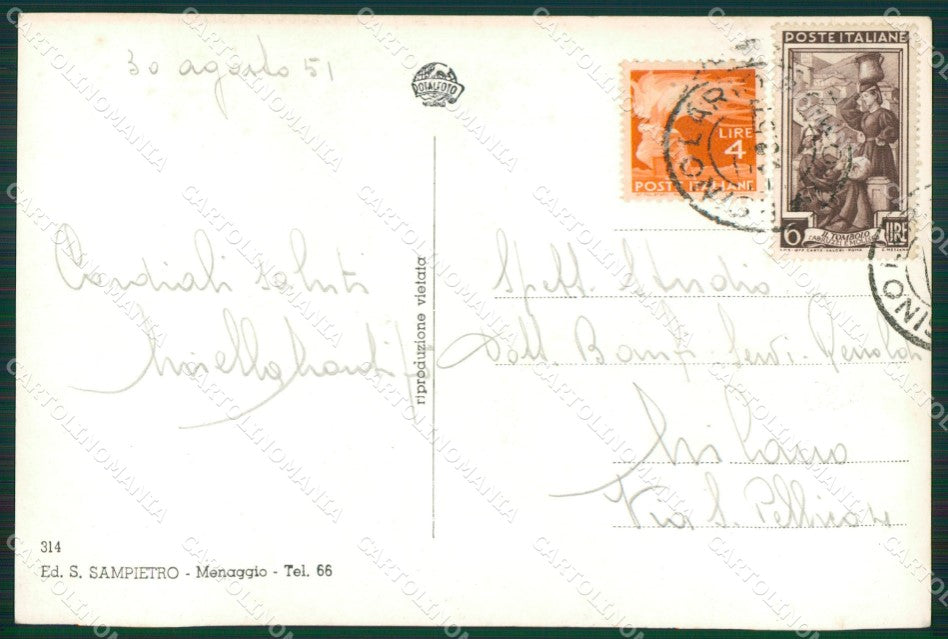 30 agosto 51
ROTALFOTO
MILANO
LIRE
4
POSTE ITALIANE
POSTE ITALIANE
6 LIRE
IL TOMBOLO
Cordiali saluti
riproduzione vietata
Spett. Studio
Dott. Banfi - Servi -
Milano
Via S. Pellico
314
Ed. S. SAMPIETRO - Menaggio - Tel. 66
CARTOLINOMANIA